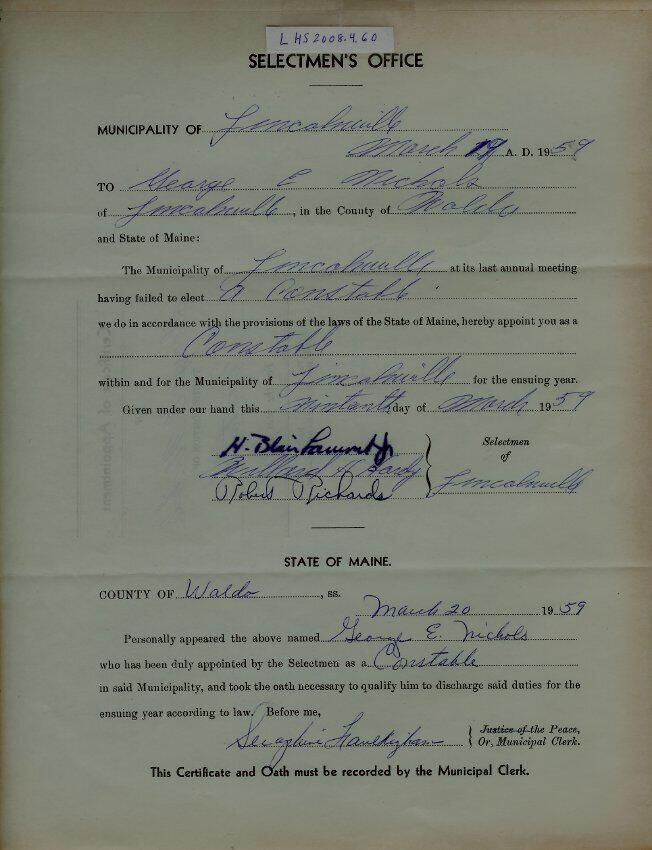 LHS2008.4.60
SELECTMEN'S OFFICE
MUNICIPALITY OF Lincolnville
March 19 A. D. 1959
TO George E Nichols
of Lincolnville, in the County of Waldo
and State of Maine:
The Municipality of Lincolnville at its last annual meeting
having failed to elect A Constable
we do in accordance with the provisions of the laws of the State of Maine, hereby appoint you as a
Constable
within and for the Municipality of Lincolnville for the ensuing year.
Given under our hand this Nintanth day of March 1959
H. Blair
Selectmen
of
Millard
Robert Richards
Lincolnville
STATE OF MAINE.
COUNTY OF Waldo, ss.
March 20 1959
Personally appeared the above named George E. Nichols
who has been duly appointed by the Selectmen as a Constable
in said Municipality, and took the oath necessary to qualify him to discharge said duties for the
ensuing year according to law. Before me,
Justice of the Peace,
Or, Municipal Clerk.
This Certificate and Oath must be recorded by the Municipal Clerk.